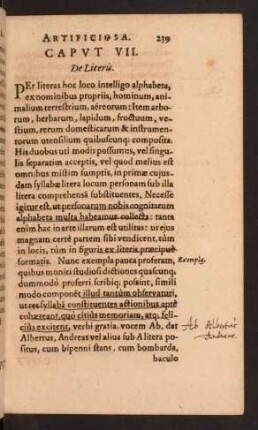 ARTIFICIOSA. 239
CAPVT VII.
De Literis.
PEr literas hoc loco intelligo alphabeta,
ex nominibus propriis, hominum, ani-
malium terrestrium, aëreorum: Item arbo-
rum, herbarum, lapidum, fructuum, ve-
stium, rerum domesticarum & instrumen-
torum utensilium quibuscunq; composita.
His duobus uti modis possumus, vel singu-
lis separatim acceptis, vel quod melius est
omnibus mistim sumptis, in primæ cujus-
dam syllabæ litera locum personam sub illa
litera comprehensã substituentes. Necesse
igitur est, ut personarum nobis cognitarum
alphabeta multa habeamus collecta: tanta
enim hac in arte illarum est utilitas: ut ejus
magnam certè partem sibi vendicent, tùm
in locis, tùm in figuris ex literis præcipuè
formatis. Nunc exempla pauca proferam,
Exempla.
quibus moniti studiosi dictiones quascunq;
dummodò proferri scribiq; possint, simili
modo componẽt illud tantùm observaturi,
ut res syllabã constituentes actionibus aptè
cohæreant, quò citiùs memoriam, atq; feli-
ciùs excitent, verbi gratia. vocem Ab, dat
Ab Albertus
Andreas.
Albertus, Andreas vel alius sub A litera po-
situs, cum bipenni stans, cum bombarda,
baculo